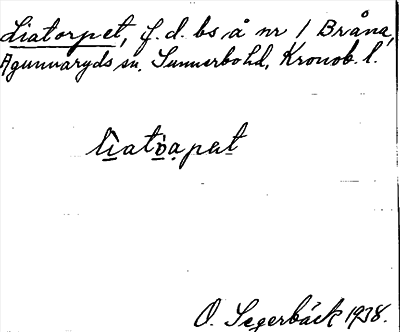 Liatorpet, f. d. bs å nr 1 Bråna,
Agunnaryds sn, Sunnerbo hd, Kronob. l.
O. Segerbäck 1938.